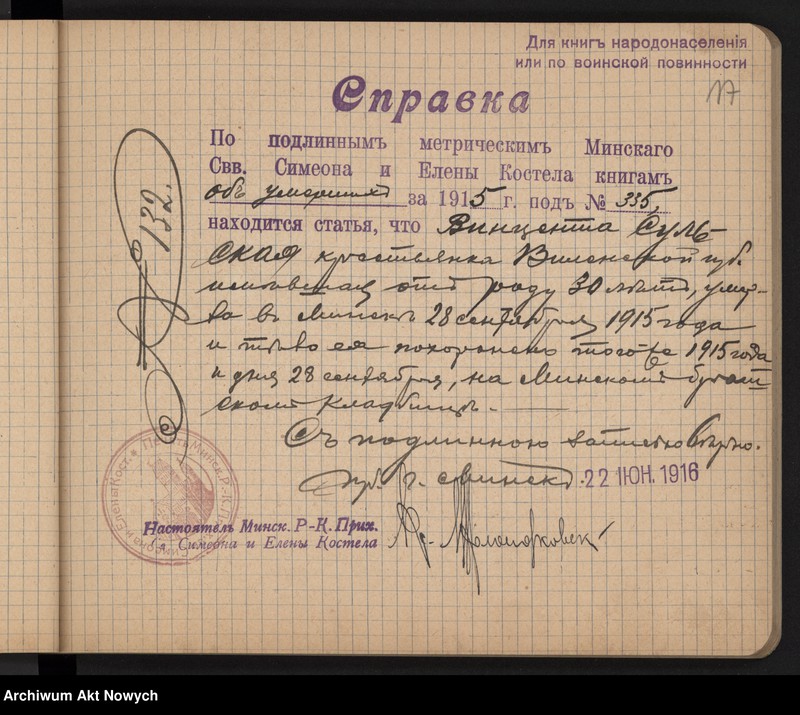 Для книгъ народонаселенія
или по воинской повинности
17
Справка
По подлиннымъ метрическимъ Минскаго
Свв. Симеона и Елены Костела книгамъ
объ умершихъ за 1915 г. подъ № 335,
находится статья, что Винцента Суль-
ская крестьянка Виленской губ.
отъ роду 30 лѣтъ, умер-
ла въ Минскѣ 28 сентября 1915 года
и тѣло ея похоронено того-же 1915 года
и дня 28 сентября, на Минскомъ
скомъ кладбищѣ.
Съ подлинною записью вѣрно.
г. Минскъ. 22 ІЮН. 1916
Настоятель Минск. Р-К. Прих.
Св. Симеона и Елены Костела
№ 132.
Archiwum Akt Nowych